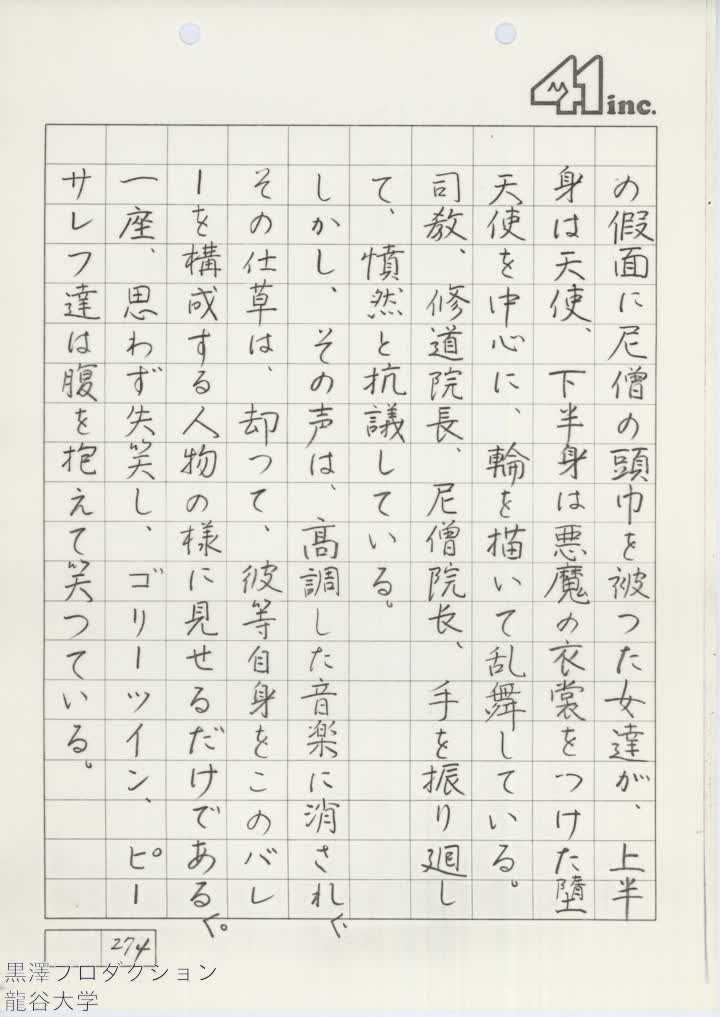 41 inc.
の假面に尼僧の頭巾を被つた女達が、上半
身は天使、下半身は悪魔の衣裳をつけた堕
天使を中心に、輪を描いて乱舞している。
司教、修道院長、尼僧院长、手を振り廻し
て、憤然と抗議している。
しかし、その声は、高調した音楽に消され、
その仕草は、却つて、彼等自身をこのバレ
ーを構成する人物の様に見せるだけである。
一座、思わず失笑し、ゴリーツイン、ピー
サレフ達は腹を抱えて笑つている。
274
黒澤プロダクション
龍谷大学